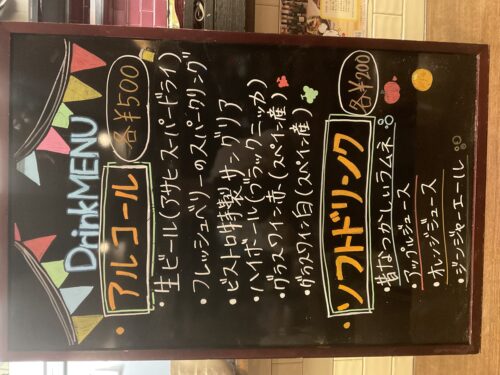 Drink MENU
・アルコール 各¥500
・生ビール(アサヒスーパードライ)
・フレッシュベリーのスパークリング
・ビストロ特製サングリア
・ハイボール(ブラックニッカ)
・グラスワイン赤(スペイン産)
・グラスワイン白(スペイン産)
・ソフトドリンク 各¥200
・昔なつかしいラムネ
・アップルジュース
・オレンジジュース
・ジンジャーエール